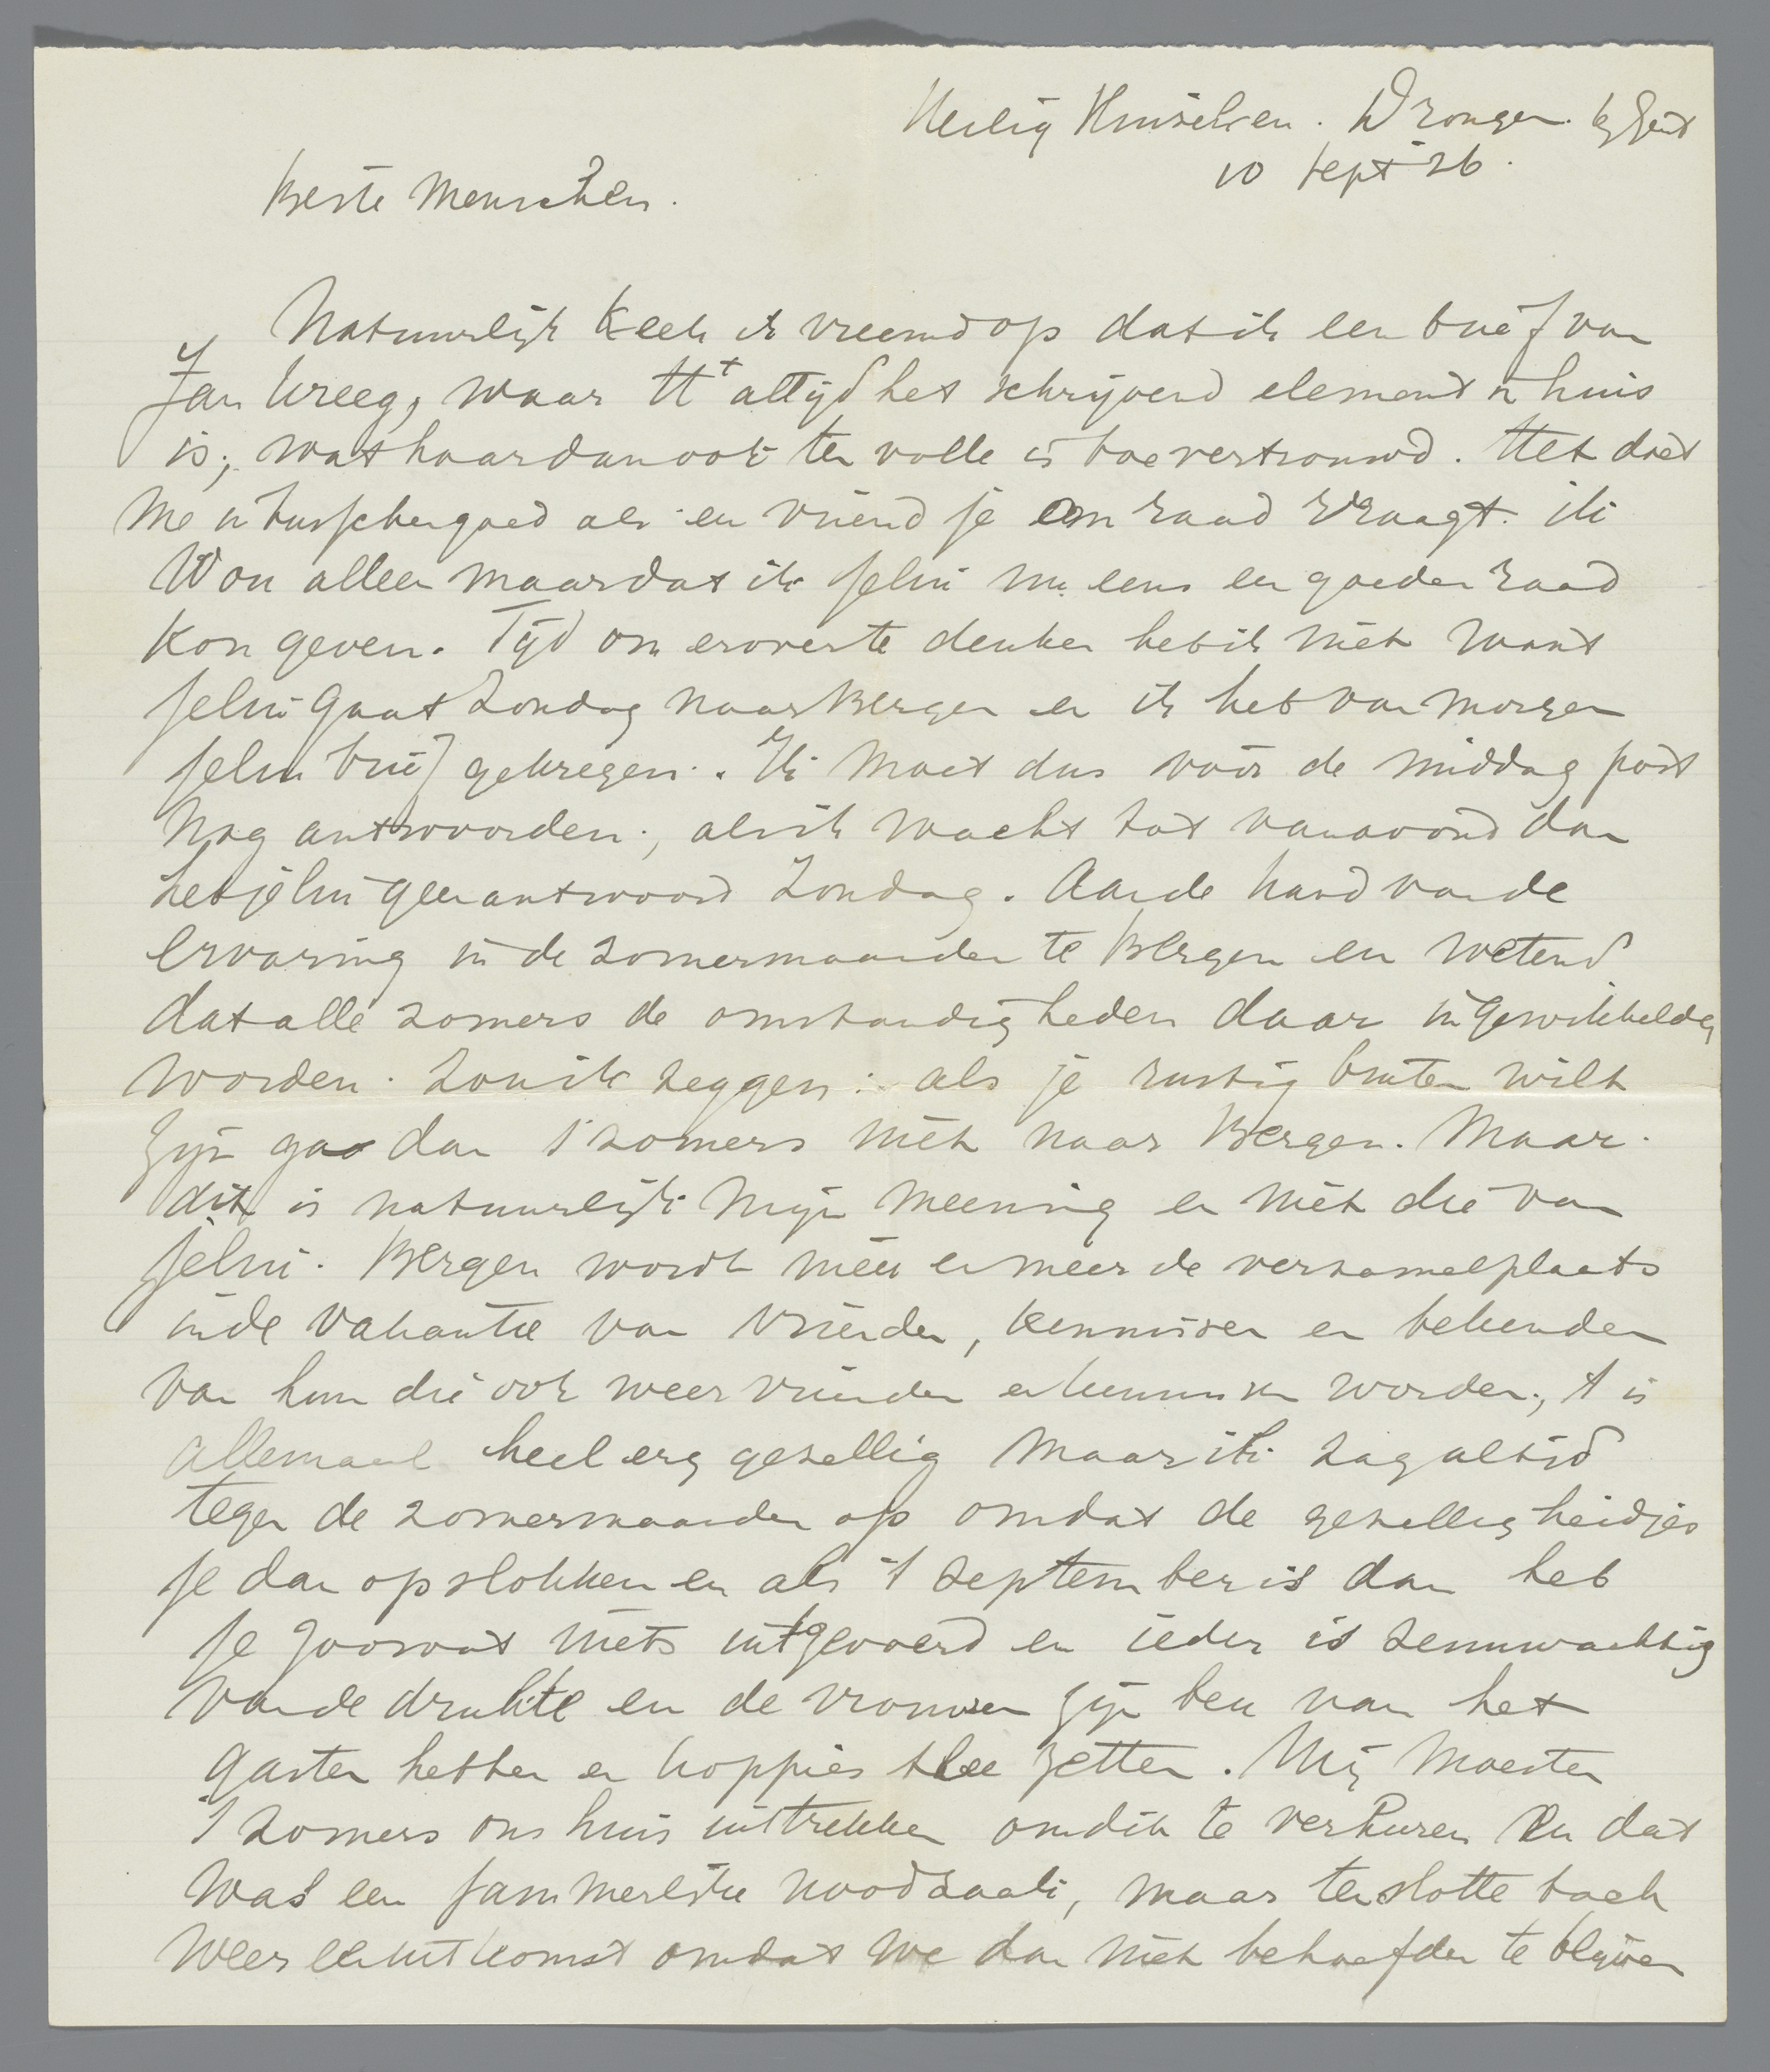 Heilig Huiseken. Drongen. bij Gent
10 Sept 26.
Beste Menschen.
Natuurlijk keek ik vreemd op dat ik een brief van
Jan kreeg, waar tt altijd het schrijvend element in huis
is; wat haar dan ook ten volle is toevertrouwd. Het doet
me intusschen goed als een vriend je om raad vraagt. ik
Wou alleen maar dat ik jelui nu eens een goeden raad
kon geven. Tijd om erover te denken heb ik niet want
jelui gaat Zondag naar Bergen en ik heb van morgen
jelui brief gekregen. Ik moet dus vóór de middag post
nog antwoorden; als ik wacht tot vanavond dan
heb jelui geen antwoord Zondag. Aan de hand van de
ervaring in de zomermaanden te Bergen en wetend
dat alle zomers de omstandigheden daar ingewikkelder
worden. Zou ik zeggen: als je rustig buiten wilt
zijn ga dan 's zomers niet naar Bergen. Maar.
dit is natuurlijk mijn meening en niet die van
jelui. Bergen wordt meer en meer de verzamelplaats
in de vakantie van vrienden, kennissen en bekenden
van hun die ook weer vrienden en kennissen worden; 't is
allemaal heel erg gezellig maar ik zag altijd
tegen de zomermaanden op omdat de gezelligheidjes
je dan opslokken en als 't September is dan heb
je zoowat niets uitgevoerd en ieder is zenuwachtig
van de drukte en de vrouwen zijn beu van het
gasten hebben en koppies thee zetten. Wij moesten
's zomers ons huis uittrekken om dit te verhuren en dat
was een jammerlijke noodzaak, maar tenslotte toch
weer een uitkomst omdat we dan niet behoefden te blijven